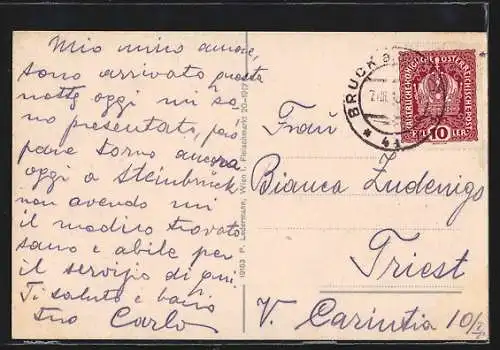 Mio mino amore,
sono arrivato questa
notte oggi mi so,
no presentato, però
pare torno ancora
oggi a Steinbrück
non avendo mi
il medico trovato
sano e abile per
il servizio di qui.
Ti saluto e bacio
tuo Carlo
19163 P. Ledermann, Wien I, Fleischmarkt 20-1917
BRUCK a.
KAISERLICHE KÖNIGLICHE ÖSTERREICHISCHE POST
10
HELLER
Frau
Bianca Zudenigo
Triest
V. Carintia 10/I